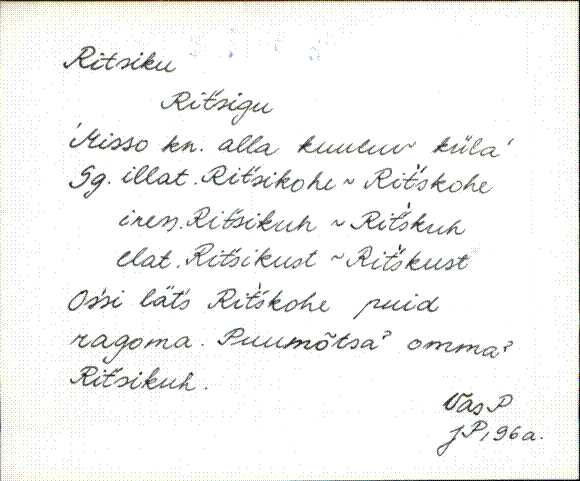 Ritsiku
Rit́sigu
'Misso kn. alla kuuluv küla'
Sg. illat. Rit́sikohe ~ Rit̀́skohe
iness. Rit́sikuh ~ Rit̀́skuh
elat. Rit́sikust ~ Rit̀́skust
Ośsi lät́s Rit̀́skohe puid
ragoma. Puumõtsaʔ ommaʔ
Rit́sikuh.
Vas P
JP, 96a.